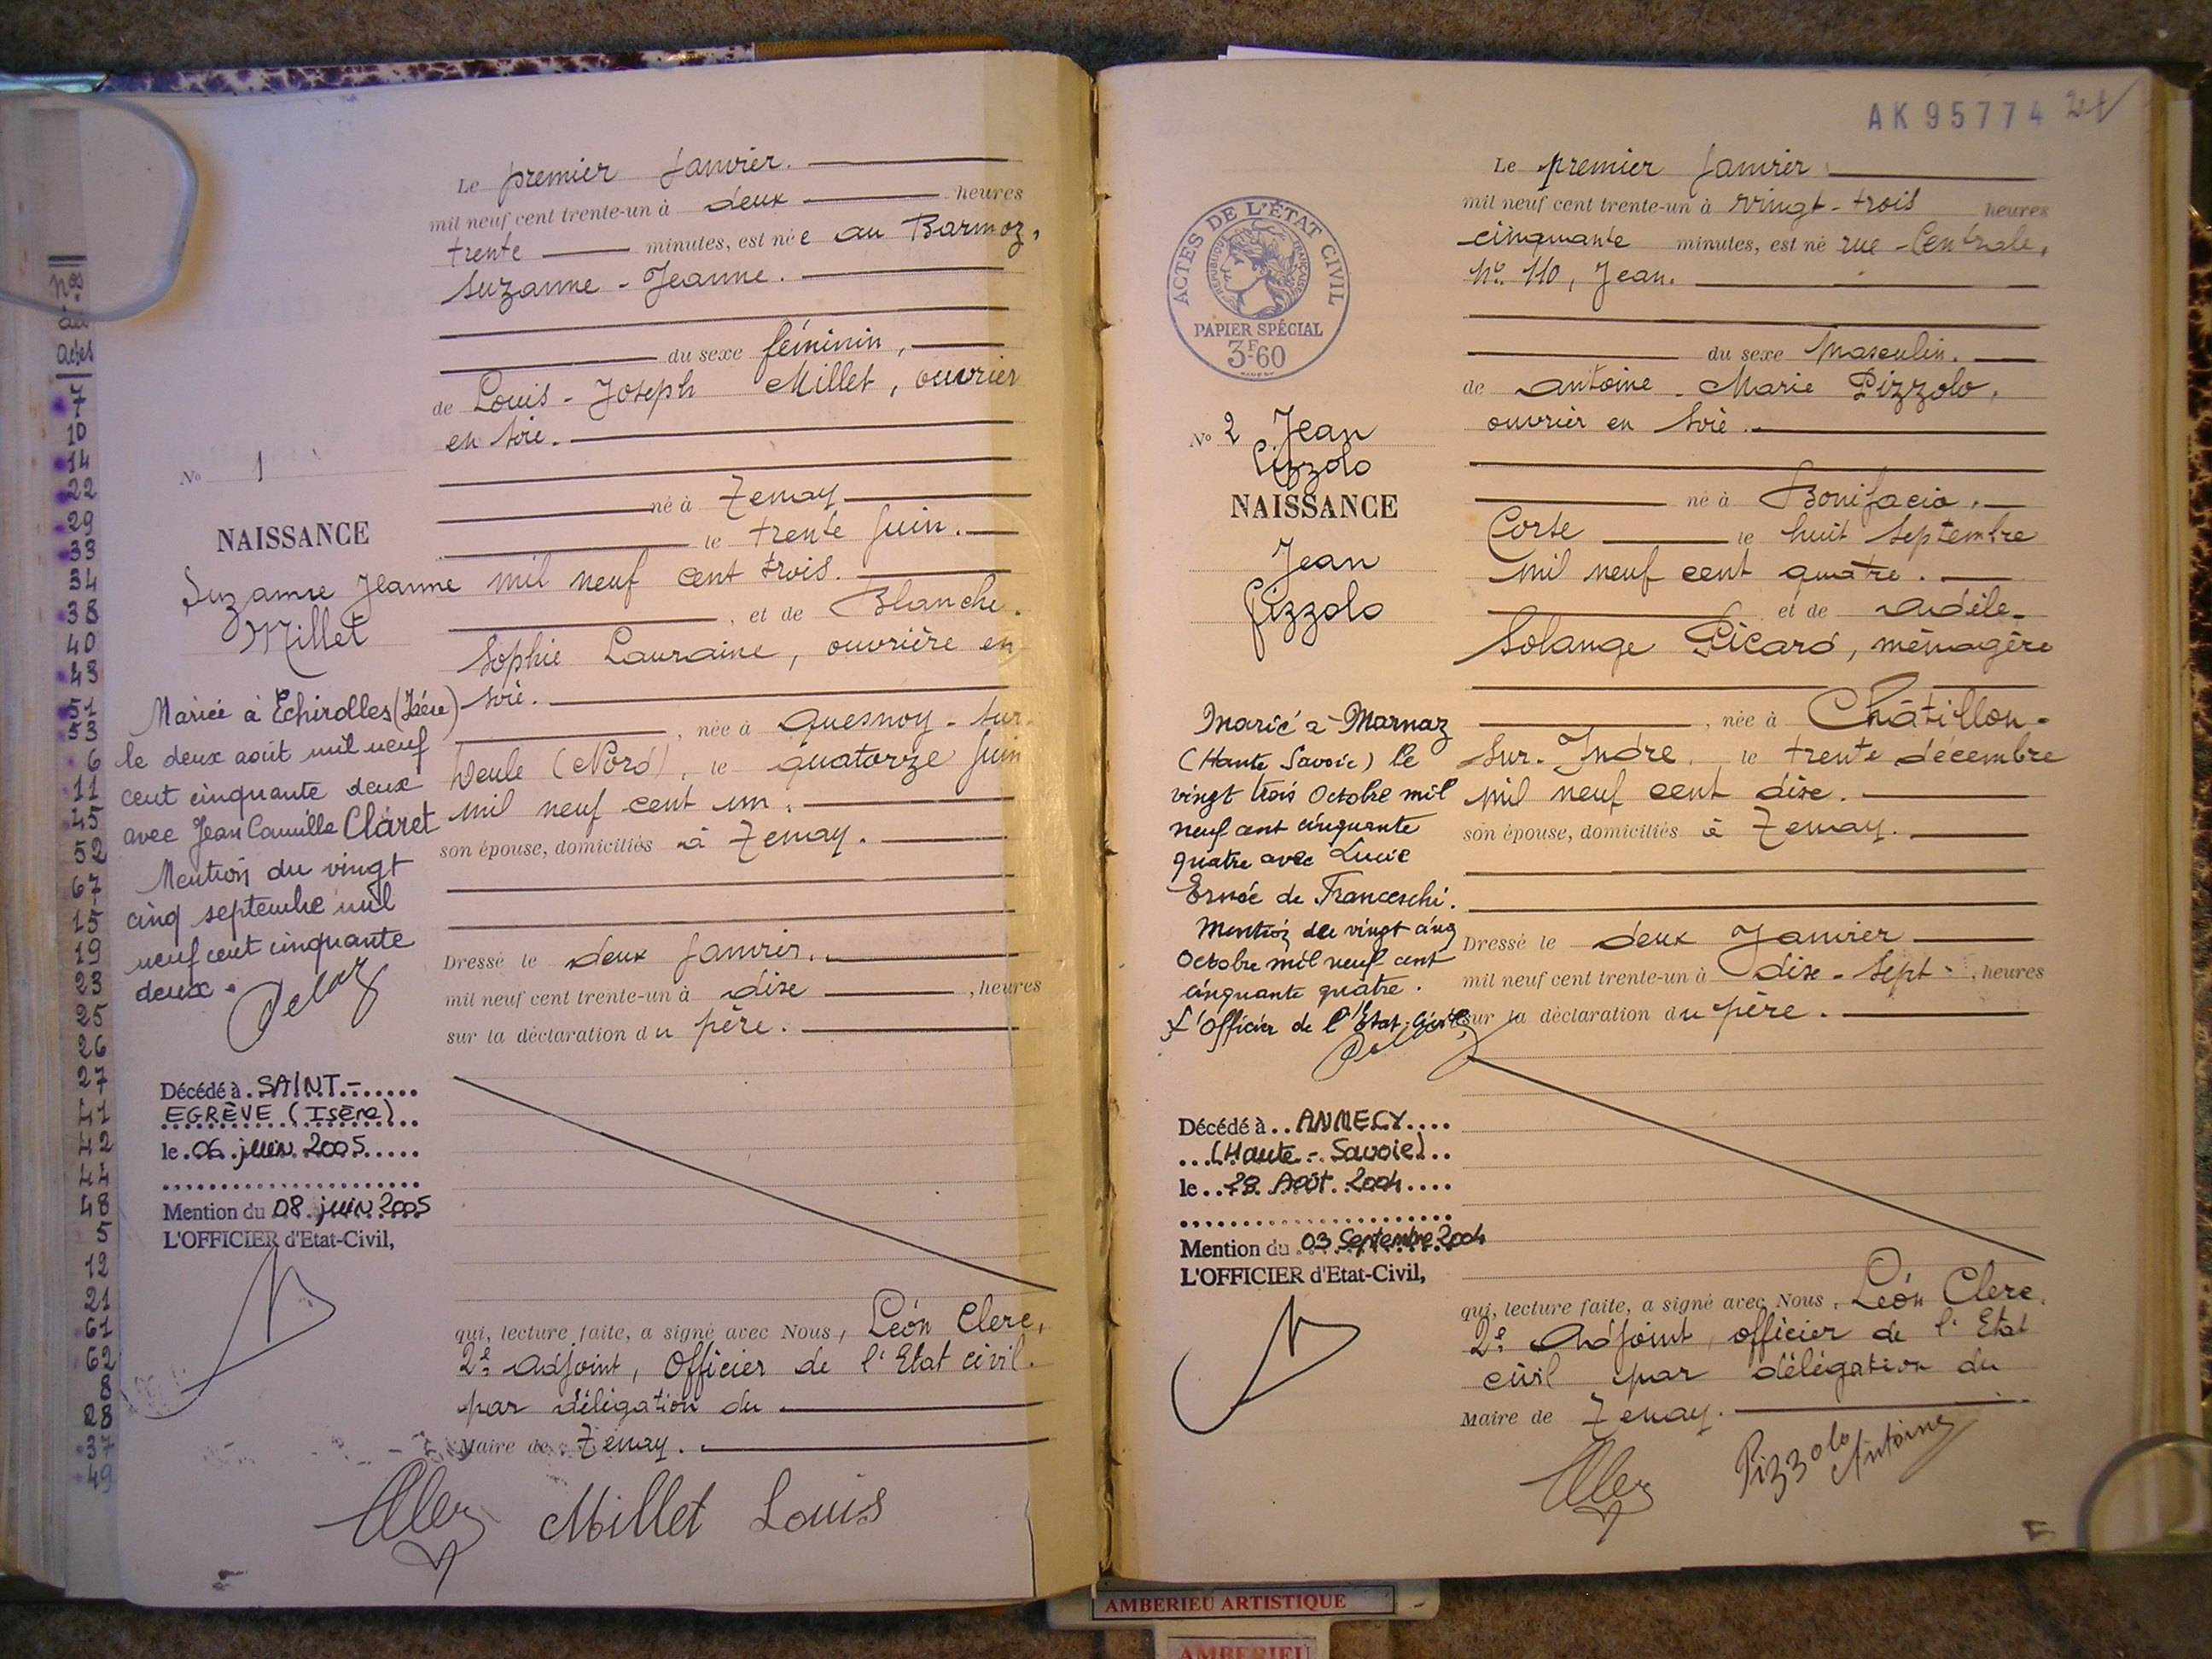 nos
des
actes
7
7
10
14
22
29
33
34
38
40
43
51
53
6
11
45
52
67
15
19
23
25
26
27
41
42
44
48
5
12
21
61
62
8
28
37
49
No 1
NAISSANCE
Suzanne Jeanne
Millet
Mariée à Echirolles (Isère)
le deux août mil neuf
cent cinquante deux
avec Jean Camille Claret
Mention du vingt
cinq septembre mil
neuf cent cinquante
deux.
Décédé à SAINT-
EGRÈVE (Isère)
le 06 juin 2005
Mention du 08 juin 2005
L'OFFICIER d'Etat-Civil,
Le premier Janvier.
mil neuf cent trente-un à deux heures
trente minutes, est née au Barmoz,
Suzanne - Jeanne.
du sexe féminin,
de Louis - Joseph Millet, ouvrier
en soie.
né à Tenay
le trente Juin.
mil neuf cent trois.
, et de Blanche.
Sophie Lauraine, ouvrière en
soie.
, née à Quesnoy - sur -
Deule (Nord), le quatorze Juin
mil neuf cent un.
son épouse, domiciliés à Tenay.
Dressé le deux Janvier.
mil neuf cent trente-un à dix , heures
sur la déclaration du père.
qui, lecture faite, a signé avec Nous, Léon Clerc,
2e Adjoint, Officier de l'Etat civil.
par délégation du
Maire de Tenay.
Millet Louis
AK 95774
ACTES DE L'ÉTAT CIVIL
RÉPUBLIQUE FRANÇAISE
PAPIER SPÉCIAL
3F60
No 2 Jean
Pizzolo
NAISSANCE
Jean
Pizzolo
Marié à Marnaz
(Haute Savoie) le
vingt trois Octobre mil
neuf cent cinquante
quatre avec Lucie
de Franceschi.
Mention du vingt cinq
Octobre mil neuf cent
cinquante quatre.
L'Officier de l'Etat-Civil,
Décédé à ANNECY
(Haute - Savoie)
le 28 Août 2004
Mention du 03 Septembre 2004
L'OFFICIER d'Etat-Civil,
Le premier Janvier
mil neuf cent trente-un à vingt - trois heures
cinquante minutes, est né rue Centrale,
No. 110, Jean.
du sexe Masculin.
de Antoine - Marie Pizzolo,
ouvrier en soie.
né à Bonifacio.
Corse le huit Septembre
mil neuf cent quatre.
et de Adèle-
Solange Picard, ménagère
, née à Châtillon -
sur - Indre, le trente décembre
mil neuf cent dix.
son épouse, domiciliés à Tenay.
Dressé le deux Janvier
mil neuf cent trente-un à dix - sept , heures
sur la déclaration du père.
qui, lecture faite, a signé avec Nous, Léon Clerc,
2e Adjoint, officier de l'Etat
civil par délégation du
Maire de Tenay.
Pizzolo Antoine
AMBERIEU ARTISTIQUE
AMBERIEU